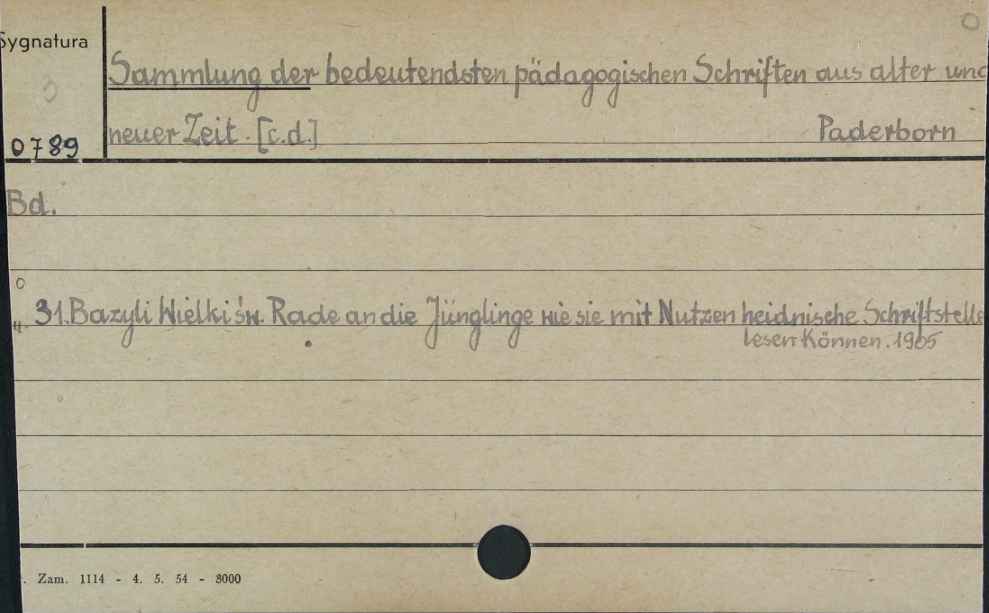 Sygnatura
Sammlung der bedeutendsten pädagogischen Schriften aus alter und
neuer Zeit. [c.d.]
Paderborn
0789
Bd.
31. Bazyli Wielki św. Rade an die Jünglinge wie sie mit Nutzen heidnische Schriftstelle
lesen Können. 1905
. Zam. 1114 - 4. 5. 54 - 8000